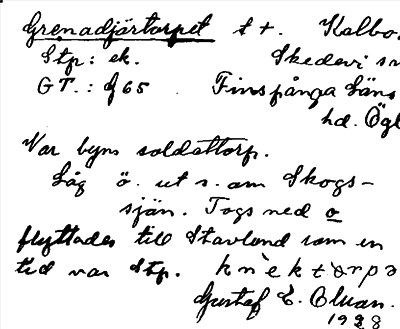 Grenadjärtorpet s t. Kalbo.
Stp: ek. Skedevi sn
GT.: f 65 Finspånga läns
hd. Ögl
Var byns soldattorp.
Låg ö. ut s. om Skogs-
sjön. Togs ned o
flyttades till Stavlund som en
tid var Stp. knektorpə
Gustaf E. Olsson.
1928